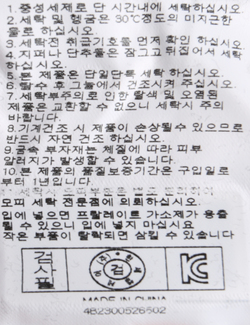 1. 중성세제로 단 시간내에 세탁하십시오.
2. 세탁 및 헹굼은 30℃정도의 미지근한
물로 하십시오.
3. 세탁전 취급기호를 먼저 확인 하십시오
4. 지퍼나 단추들은 잠그고 뒤집어서 세탁
하십시오.
5. 본 제품은 단일단독 세탁 하십시오
6. 탈수 후 그늘에서 건조시켜 주십시오.
7. 세탁부주의로 인한 탈색 및 오염된
제품은 교환할 수 없으니 세탁시 주의
바랍니다.
8. 기계건조 시 제품이 손상될수 있으므로
반드시 자연 건조 하십시오.
9. 금속 부자재는 체질에 따라 피부
알러지가 발생할 수 있습니다.
10. 본 제품의 품질보증기간은 구입일로
부터 1년입니다.
모피 세탁 전문점에 의뢰하십시오.
입에 넣으면 프탈레이트 가소제가 용출
될 수 있으니 입에 넣지 마십시요
작은 부품이 탈락되면 삼킬 수 있습니다
검사필
검
KC
MADE IN CHINA
4B2300526502